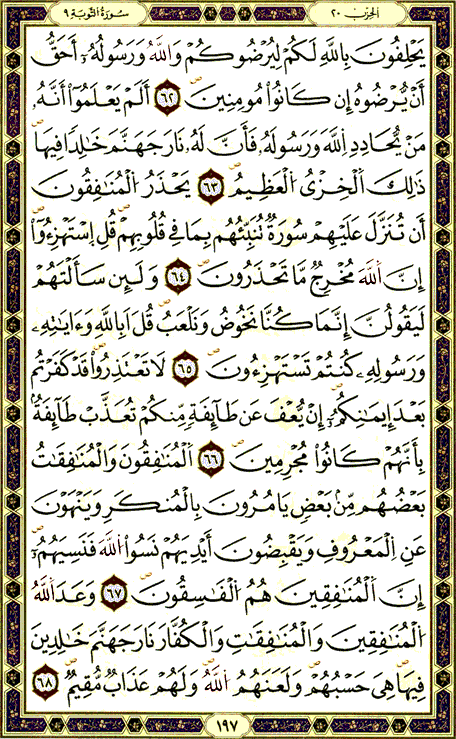 الحزب ٢٠
سورة التوبة ٩
يَحْلِفُونَ بِاللَّهِ لَكُمْ لِيُرْضُوكُمْ وَاللَّهُ وَرَسُولُهُ أَحَقُّ
أَنْ يُرْضُوهُ إِن كَانُوا مُومِنِينَ ٦٢ أَلَمْ يَعْلَمُوا أَنَّهُ
مَنْ يُحَادِدِ اللَّهَ وَرَسُولَهُ فَأَنَّ لَهُ نَارَ جَهَنَّمَ خَالِدًا فِيهَا
ذَٰلِكَ الْخِزْيُ الْعَظِيمُ ٦٣ يَحْذَرُ الْمُنَافِقُونَ
أَن تُنَزَّلَ عَلَيْهِمْ سُورَةٌ تُنَبِّئُهُم بِمَا فِي قُلُوبِهِمْ قُلِ اسْتَهْزِءُوا
إِنَّ اللَّهَ مُخْرِجٌ مَّا تَحْذَرُونَ ٦٤ وَلَئِن سَأَلْتَهُمْ
لَيَقُولُنَّ إِنَّمَا كُنَّا نَخُوضُ وَنَلْعَبُ قُلْ أَبِاللَّهِ وَءَايَاتِهِ
وَرَسُولِهِ كُنتُمْ تَسْتَهْزِءُونَ ٦٥ لَا تَعْتَذِرُوا قَدْ كَفَرْتُم
بَعْدَ إِيمَانِكُمْ إِنْ يُعْفَ عَن طَائِفَةٍ مِّنكُمْ تُعَذَّبْ طَائِفَةٌ
بِأَنَّهُمْ كَانُوا مُجْرِمِينَ ٦٦ الْمُنَافِقُونَ وَالْمُنَافِقَاتُ
بَعْضُهُم مِّنْ بَعْضٍ يَامُرُونَ بِالْمُنكَرِ وَيَنْهَوْنَ
عَنِ الْمَعْرُوفِ وَيَقْبِضُونَ أَيْدِيَهُمْ نَسُوا اللَّهَ فَنَسِيَهُمْ
إِنَّ الْمُنَافِقِينَ هُمُ الْفَاسِقُونَ ٦٧ وَعَدَ اللَّهُ
الْمُنَافِقِينَ وَالْمُنَافِقَاتِ وَالْكُفَّارَ نَارَ جَهَنَّمَ خَالِدِينَ
فِيهَا هِيَ حَسْبُهُمْ وَلَعَنَهُمُ اللَّهُ وَلَهُمْ عَذَابٌ مُّقِيمٌ ٦٨
١٩٧